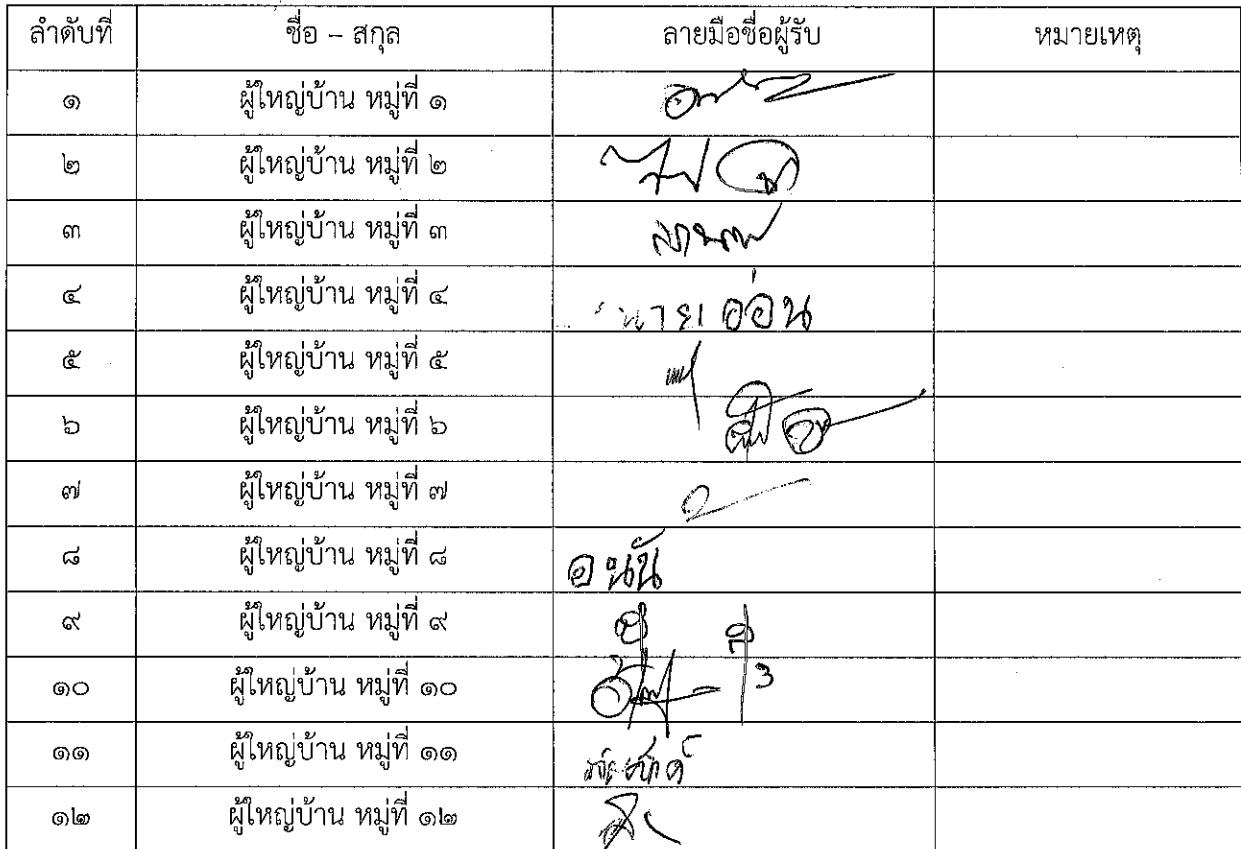 ลำดับที่ ชื่อ – สกุล ลายมือชื่อผู้รับ หมายเหตุ
๑ ผู้ใหญ่บ้าน หมู่ที่ ๑
๒ ผู้ใหญ่บ้าน หมู่ที่ ๒
๓ ผู้ใหญ่บ้าน หมู่ที่ ๓
๔ ผู้ใหญ่บ้าน หมู่ที่ ๔ นายอ่อน
๕ ผู้ใหญ่บ้าน หมู่ที่ ๕
๖ ผู้ใหญ่บ้าน หมู่ที่ ๖
๗ ผู้ใหญ่บ้าน หมู่ที่ ๗
๘ ผู้ใหญ่บ้าน หมู่ที่ ๘ อนัน
๙ ผู้ใหญ่บ้าน หมู่ที่ ๙
๑๐ ผู้ใหญ่บ้าน หมู่ที่ ๑๐
๑๑ ผู้ใหญ่บ้าน หมู่ที่ ๑๑
๑๒ ผู้ใหญ่บ้าน หมู่ที่ ๑๒